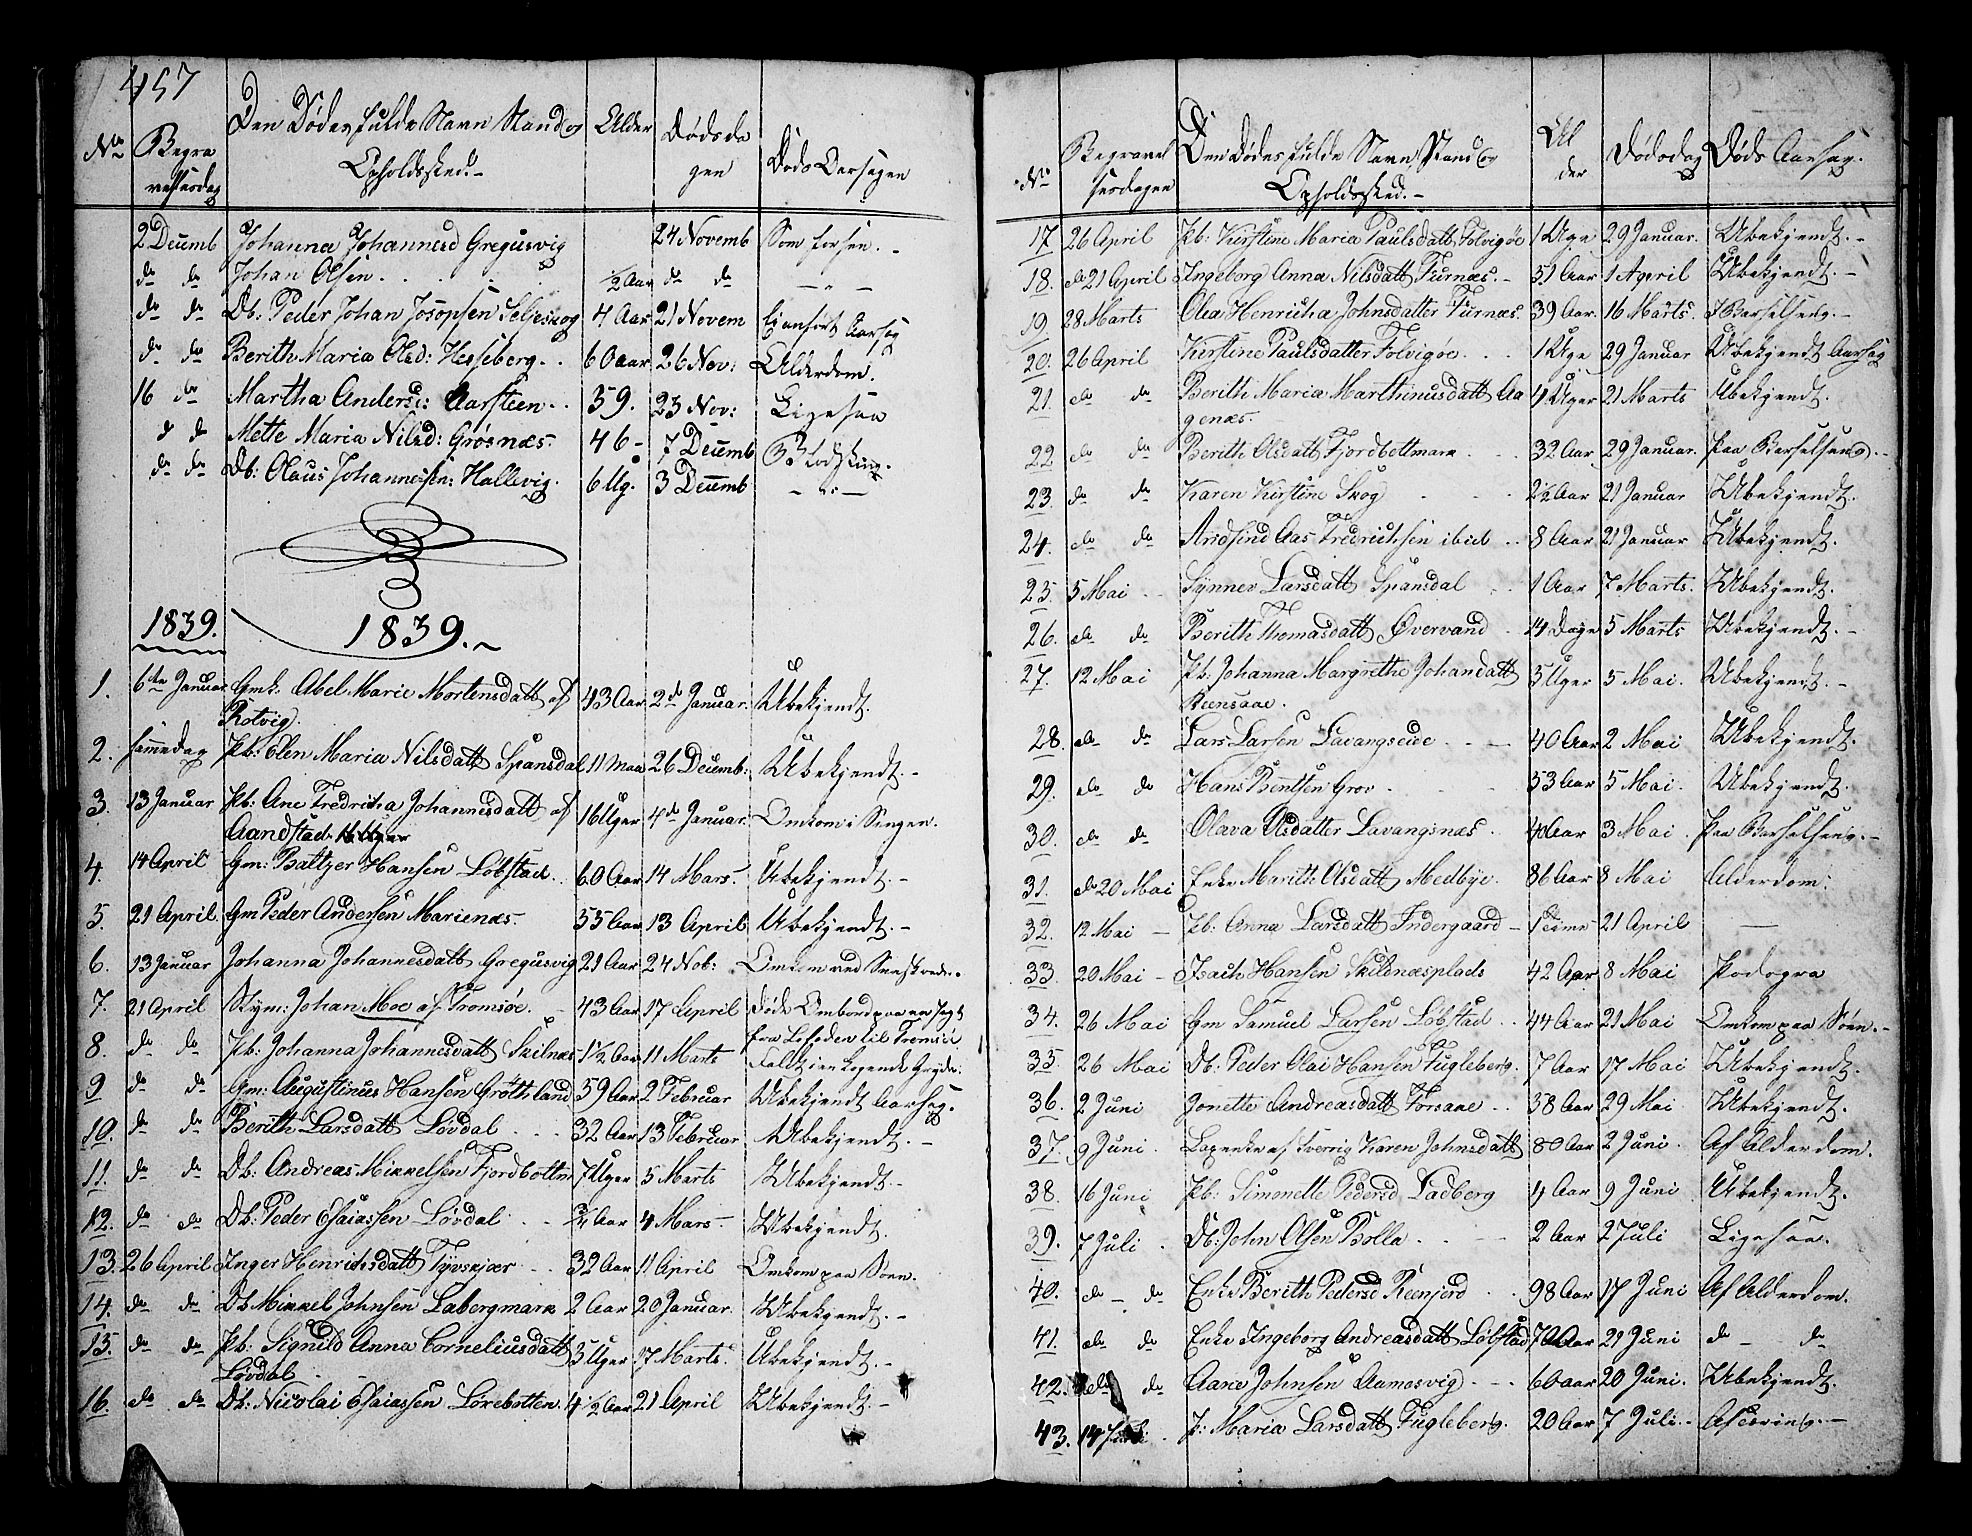 457
No Begravelsesdag Den Dødes fulde Navn Stand og Opholdssted.- Alder Dødsdagen Døds Aarsagen
2 Decemb Johanna Johannesd Gregusvig 24 Novemb Som forhen. -
do do Johan Olsen . . . . ½ Aar do do - " -
do do Db: Peder Johan Josopsen Seljeskog 4 Aar 21 Novem Aarsag
do do Berith Maria Olsd: Hesseberg . . 60 aar 26 Nov: Alderdom.
16 do Martha Andersd: Aarsteen . . 59. 23 Nov: Ligesaa
d d Mette Maria Nilsd: Grøsnæs. 46 - 7 Decemb
do do Db: Olaus Johannessen: Hallevig. 6 Ug. 3 Decemb - " -
1839. 1839. ~
1. 6te Januar Gmk: Abel Marie Mortensdatt af 43 Aar 2d Januar. Ubekjendt.
Rotvig.
2. samme dag Pb: Elen Maria Nilsdatt Spansdal 11 Maa 26 Decemb: Ubekjendt. -
3. 13 Januar Pb: Ane Fredrikka Johannesdatt af 16 Uger 4d Januar. Omkom i Sengen.
Aandstad
4. 14 April Gm: Baltzer Hansen Løbstad . . 60 Aar 14 Mars. Ubekjendt. -
5. 21 April Gm Peder Andersen Marienæs. 55 Aar 13 April Ubekjendt. -
6. 13 Januar Johanna Johannesdatt Gregusvig 21 Aar 24 Nob: Omkom ved Sneeskred. .
7. 21 April Skym: Johan Moe af Tromsøe. - 43 Aar 17 April Døde Ombord paa en Jagt
fra Lofoden til Tromsøe.
8. do do Pb: Johanna Johannesdatt Skilnæs 1½ Aar 11 Marts Faldt i en kogende Gryde.
9 do do Gm: Augustinus Hansen Grøthland 59 Aar 2 Februar Ubekjendt Aarsag.
10. do do Berith Larsdatt Løvdal . . . 32 Aar 13 Februar Ubekjendt. -
11. do do Db: Andreas Mikkelsen Fjordbottn 7 Uger 5 Marts Ubekjendt. -
12. do do Db: Peder Esaiassen Løvdal . . ¾ Aar 4 Mars. Ubekjendt.
13. 26 April Inger Henrichsdatt Tyvskjær . . 32 Aar 11 April Omkom paa Søen.
14. do do Db Mikkel Johnsen Labergmark 2 Aar 20 Januar. Ubekjendt. -
15. do do Pb: Signild Anna Corneliusdatt 5 Uger 17 Marts. Ubekjendt. -
Løvdal - -
16. do do Db: Nicolai Esaiassen Lørebotten. 4½ Aar 21 April Ubekjendt. -
No Begravelsesdagen Den Dødes fulde Navn Stand og Opholdssted. - Alder Dødsdag Døds Aarsag.
17. 26 April Pb: Kirstine Maria Paulsdatt, Folvigøe 1 Uge 29 Januar. Ubekjendt. -
18. do 21 April Ingeborg Anna Nilsdatt Furnæs. - 51 Aar 1 April Ubekjendt. -
19. 28 Marts Olea Henricha Johnsdatter Furnæs. 39 Aar 16 Marts. I Barselseng. -
20. 26 April Kirstine Paulsdatter Folvigøe . . . 1 Uge 29 Januar Ubekjendt Aarsag
21. do do Berith Maria Marthinusdatt Aa 4 Uger 21 Marts Ubekjendt.
genæs.
22 do do Berith Olsdatt Fjordbottmark . . . 32 Aar 29 Januar. Paa Barselseng. -
23. do do Karen Kirstine Skog . . . 2½ Aar 21 Januar Ubekjendt.
24. do do Aas Fredrichsen ibid . . 8 Aar 21 Januar Ubekjendt.
25. 5 Mai Synnev Larsdatt Spansdal . . 1 Aar 7 Marts. Ubekjendt.
26. do do Berith Thomasdatt Øvervand . 14 Dage 5 Marts Ubekjendt. -
27. 12 Mai Pb: Johanna Margrethe Johandatt 5 Uger 5 Mai. Ubekjendt. -
Reensaae.
28. do do Lars Larsen Lavangseide . . - 40 Aar 2 Mai Ubekjendt.
29. do do Hans Bentsen Grov . . . 53 Aar 5 Mai. Ubekjendt.
30. do do Olava Olsdatter Lavangsnæs . 40 Aar 3 Mai. Paa Barselseng. -
31. do 20 Mai Enke Marith Olsdatt Medbye. 86 Aar 8 Mai Alderdom.
32. 12 Mai - Pb: Anna Larsdatt Indergaard - 1 Time 21 April -
33 20 Mai - Isach Hansen Skilnæsplads 42 Aar 8 Mai Podogra
34. 26 Mai Gm Samuel Larsen Løbstad . . 44 Aar 21 Mai Omkom paa Søen. -
35. 26 Mai Db: Peder Olai Hansen Fugleberg. 7 Aar 17 Mai Ubekjendt.
36. 2 Juni Jonette Andreasdatt Forsaae . . 38 Aar 29 Mai Ubekjendt.
37. 9 Juni . Karen Johnsdatt 80 Aar 2 Juni . Af Alderdom.
38. 16 Juni Pb: Simonette Pedersd Ladberg 4 Aar 9 Juni Ubekjendt.
39. 7 Juli . Db: John Olsen Bolla . . - 2 Aar 2 Juli Ligesaa.
40. do - do Enke Berith Pedersd Reenjord . . 98 Aar 17 Juni Af Alderdom.
41. do do Enke Ingeborg Andreasdatt Løbstad 70 Aar 21 Juni d - do
42. do do Aane Johnsen Aamosvig . - - 60 aar 20 Juni. Ubekjendt.
43. 14 Juli . P: Maria Larsdatt Fugleberg. 20 Aar 7 Juli. -